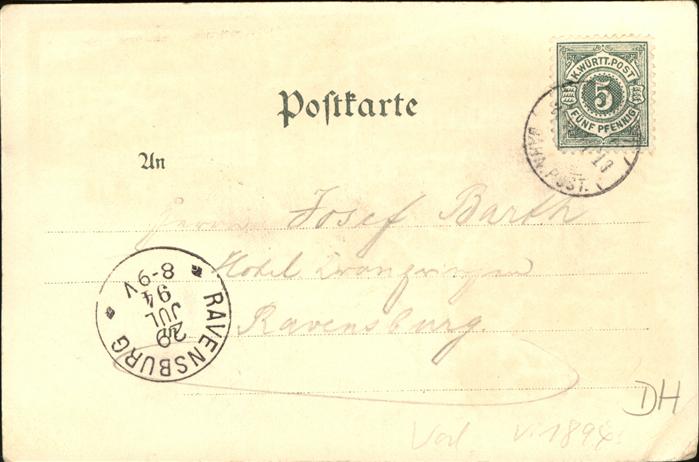 K. WÜRTT. POST
5
FÜNF PFENNIG
Postkarte
BAHN.POST.
An
Herrn Josef Barth
Hotel
Ravensburg.
RAVENSBURG
29
JUL
94
8-9 V
DH
v. 1894